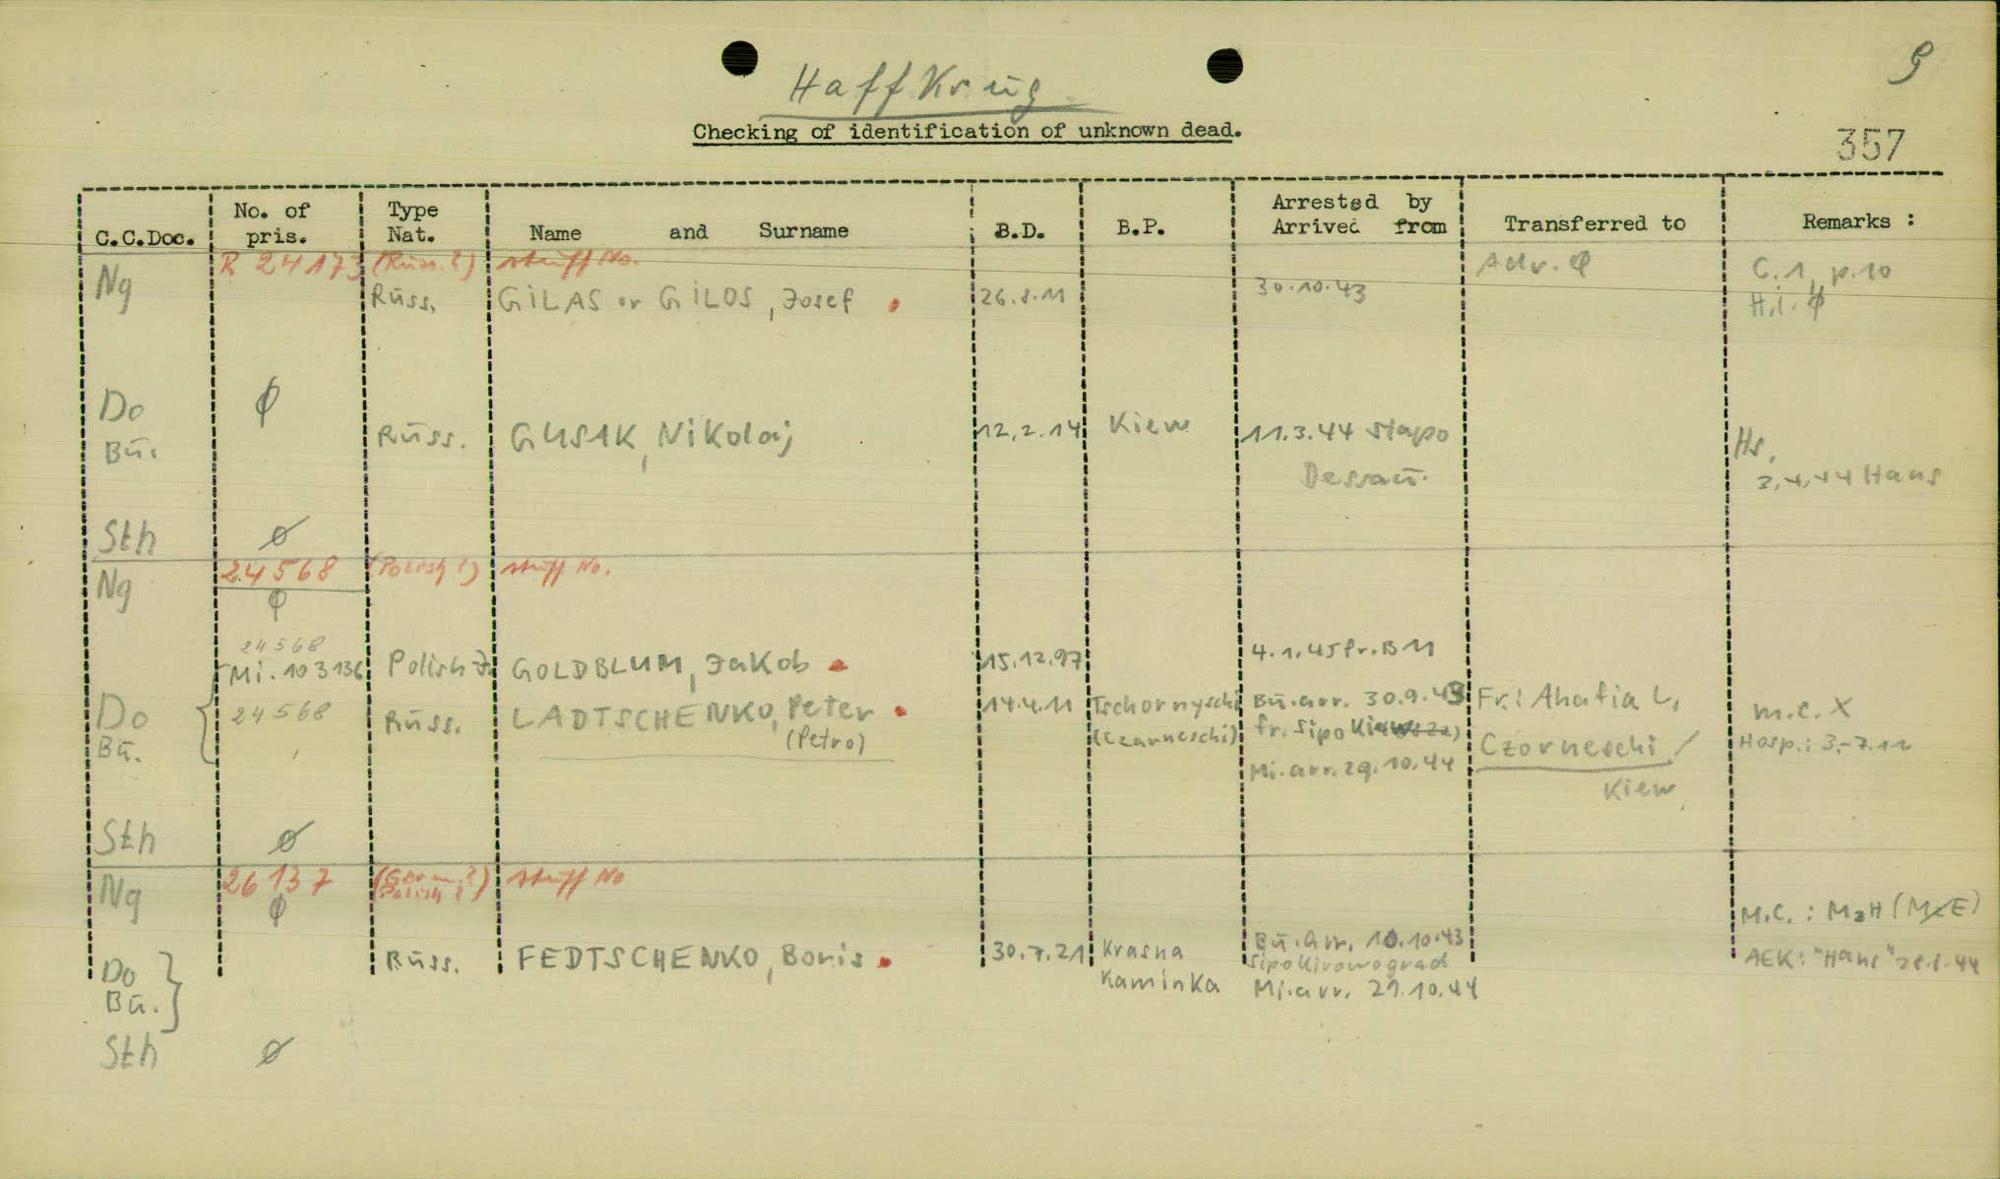 9
Haffkrug
Checking of identification of unknown dead.
357
C.C.Doc. No. of pris. Type Nat. Name and Surname B.D. B.P. Arrested by Arrived from Transferred to Remarks :
R 24173 (Russ.?) stuff No. Adr. ϕ C.1, p.10
Ng Russ. GILAS or GILOS, Josef 26.8.11 30.10.43 H.i. ϕ
Do ϕ
Bū. Russ. GUSAK, Nikolaj 12.2.14 Kiew 11.3.44 Stapo Hs,
Dessaū. 3.4.44 Hans
Sth ø
24568 (Polish?) stuff No.
Ng ϕ
24568
Mi. 103136 Polish J. GOLDBLUM, Jakob 15.12.97 4.1.45 fr. B M
Do 24568 Rūss. LADTSCHENKO, Peter 14.4.11 Tschornyschi Bū. arr. 30.9.43 Fr: Ahafia L, m.c. X
Bū. (Petro) (Czarneschi) fr. Sipo Kiew Czorneschi / Hosp.: 3.-7.11
Mi. arr. 29.10.44 Kiew
Sth ø
26137 (Germ.?) stuff No
Ng ϕ Polish?) M.C. : M2H (McE)
Do Rūss. FEDTSCHENKO, Boris 30.7.21 Krasna Bū. Arr. 10.10.43 AEK: "Hans"
Sipo Kirowograd
Bū. Kaminka Mi. arr. 29.10.44
Sth ø